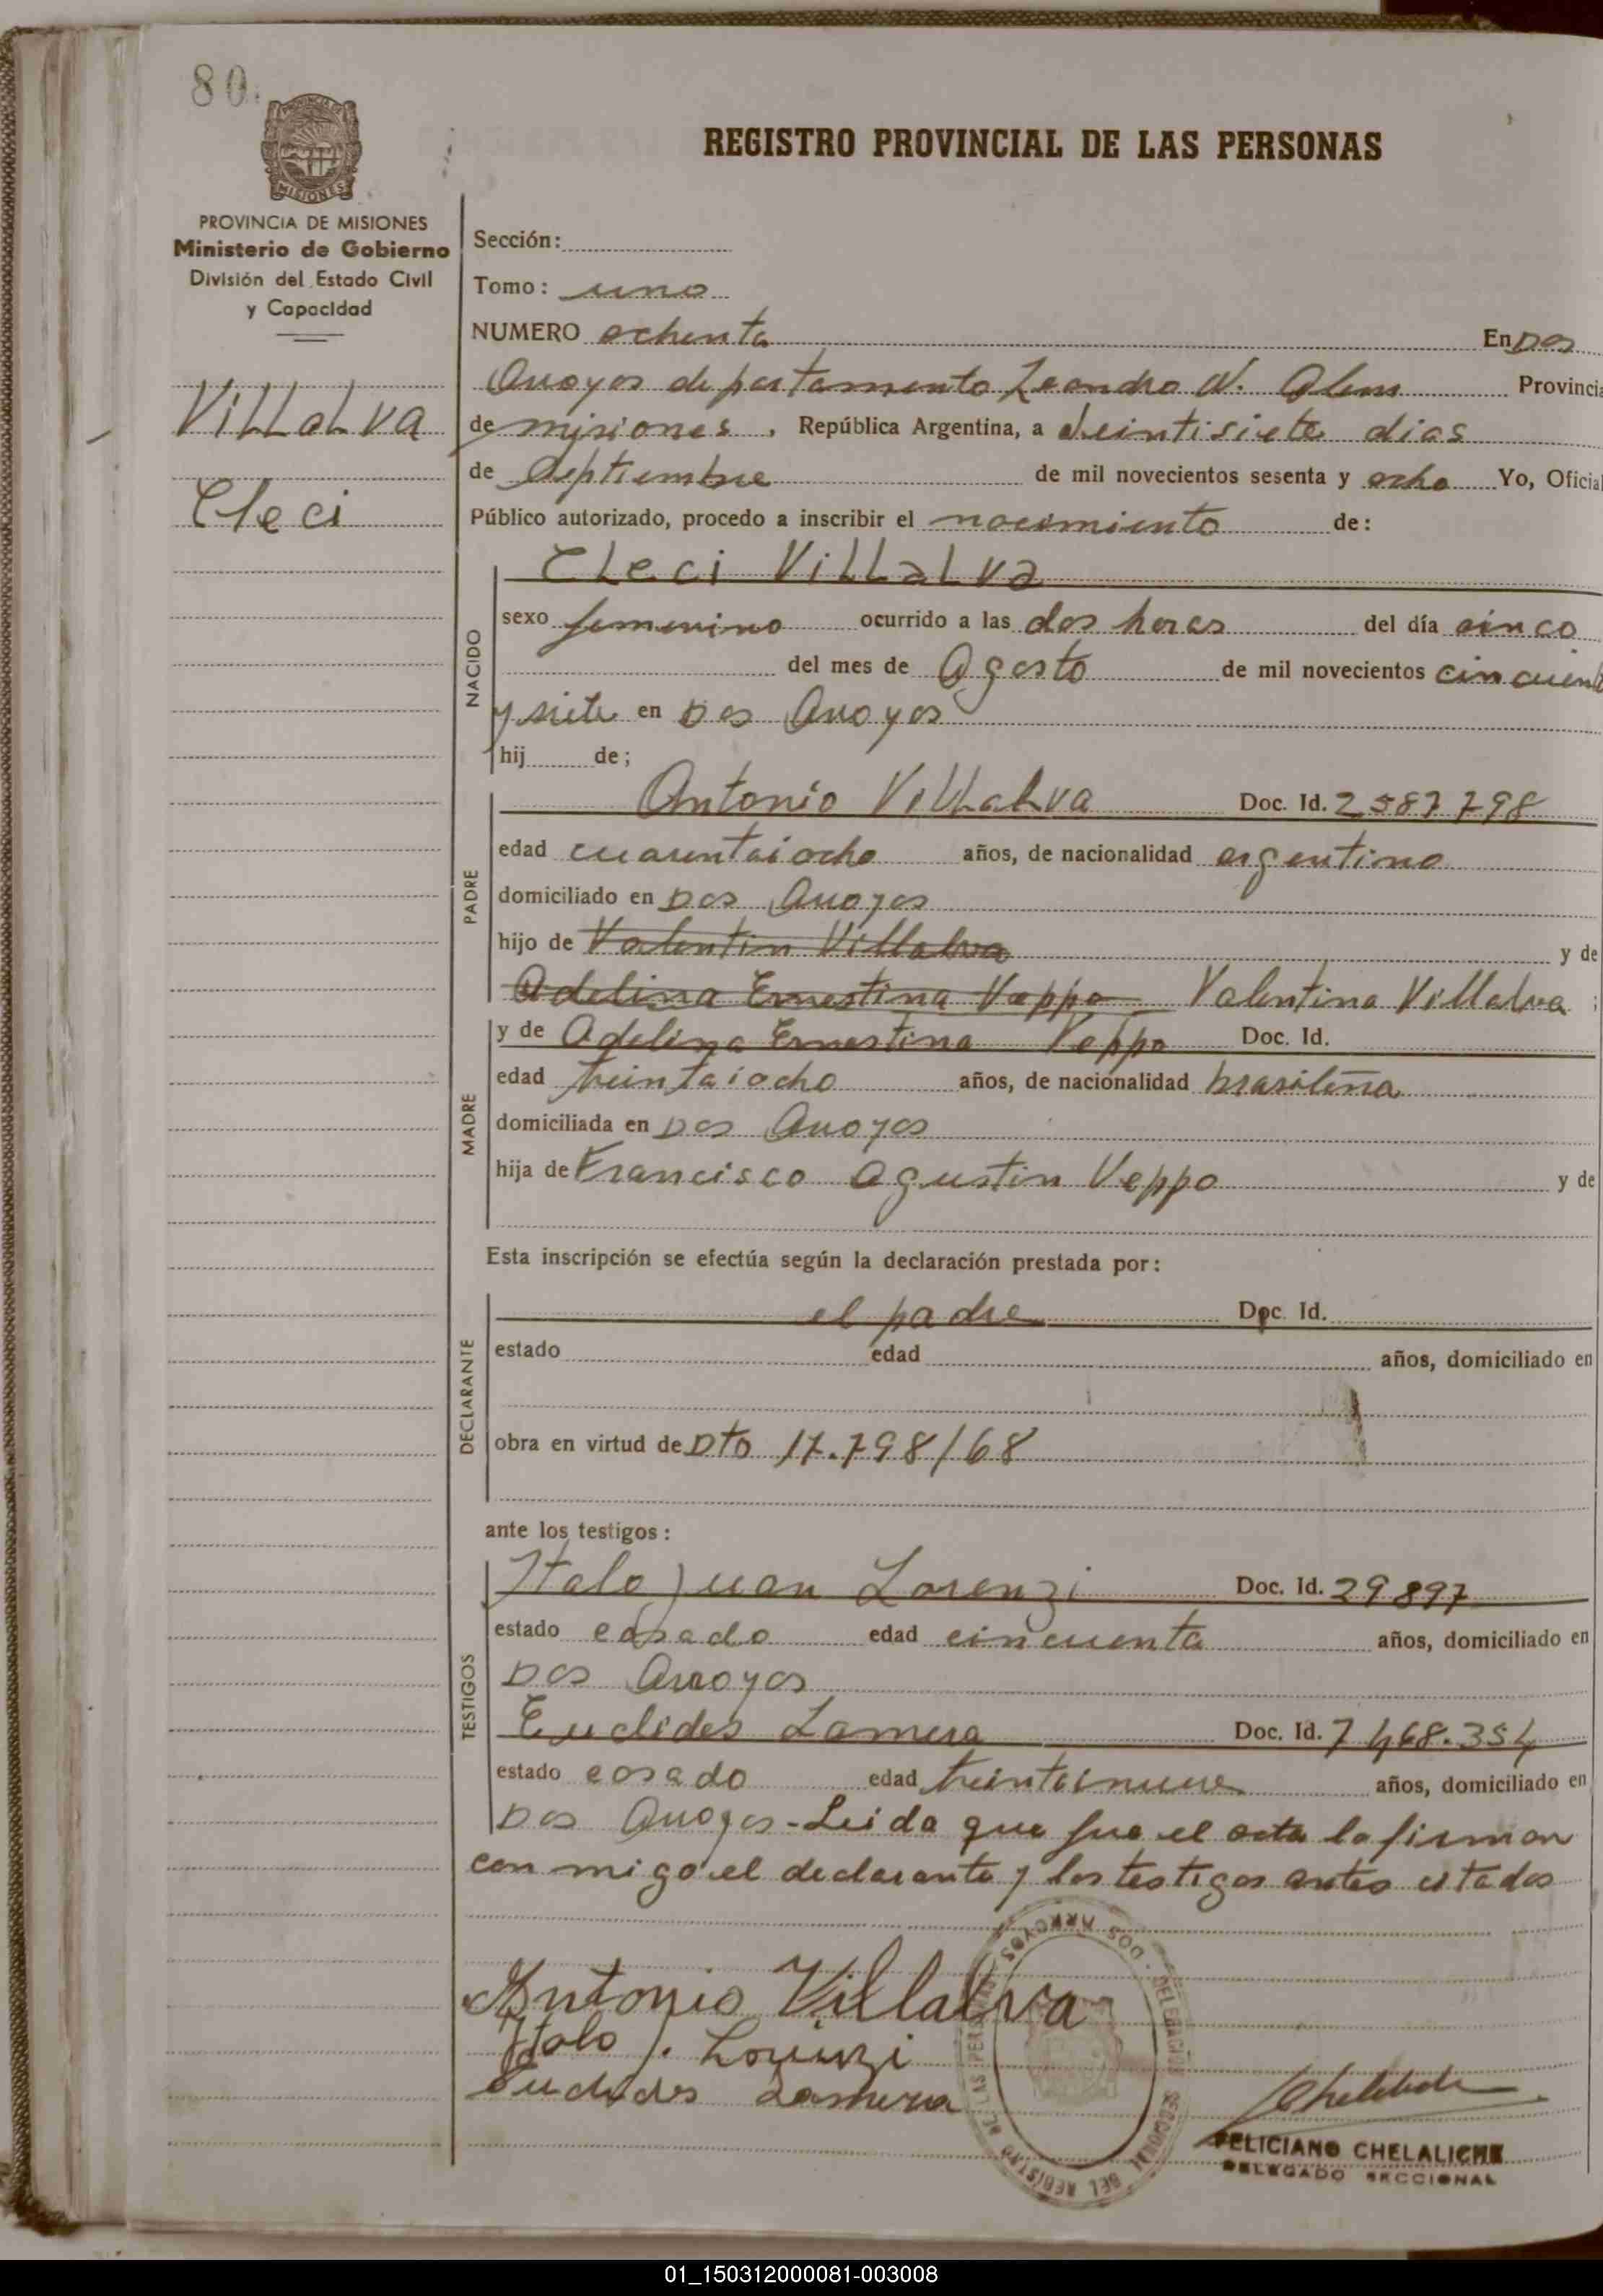 80.
PROVINCIA DE
MISIONES
PROVINCIA DE MISIONES
Ministerio de Gobierno
División del Estado Civil
y Capacidad
VILLALVA
Cleci
REGISTRO PROVINCIAL DE LAS PERSONAS
Sección:
Tomo: uno
NUMERO ochenta En Dos
Arroyos departamento Leandro N. Alem Provincia
de misiones, República Argentina, a Veintisiete dias
de Septiembre de mil novecientos sesenta y ocho Yo, Oficial
Público autorizado, procedo a inscribir el nacimiento de:
NACIDO
Cleci Villalva
sexo femenino ocurrido a las dos horas del día cinco
del mes de Agosto de mil novecientos cincuent
y siete en Dos Arroyos
hij de;
PADRE
Antonio Villalva Doc. Id. 2587798
edad cuarentaiocho años, de nacionalidad argentino
domiciliado en Dos Arroyos
hijo de Valentin Villalva y de
Adelina Ernestina Veppo Valentina Villalva;
y de Adelina Ernestina Veppo Doc. Id.
MADRE
edad treintaiocho años, de nacionalidad brasileña
domiciliada en Dos Arroyos
hija de Francisco Agustin Veppo y de
Esta inscripción se efectúa según la declaración prestada por:
DECLARANTE
el padre Doc. Id.
estado edad años, domiciliado en
obra en virtud de Dto 17.798/68
ante los testigos:
TESTIGOS
Italo Juan Lorenzi Doc. Id. 29897
estado casado edad cincuenta años, domiciliado en
Dos Arroyos
Euclides Lamera Doc. Id. 7468.354
estado casado edad treintainueve años, domiciliado en
Dos Arroyos - Leida que fue el acta la firman
con migo el declarante y los testigos antes citados
Antonio Villalva
Italo J. Lorenzi
Euclides Lamera
DELEGACION SECCIONAL DEL REGISTRO DE LAS PERSONAS - DOS ARROYOS -
FELICIANO CHELALICHE
DELEGADO SECCIONAL
01_150312000081-003008